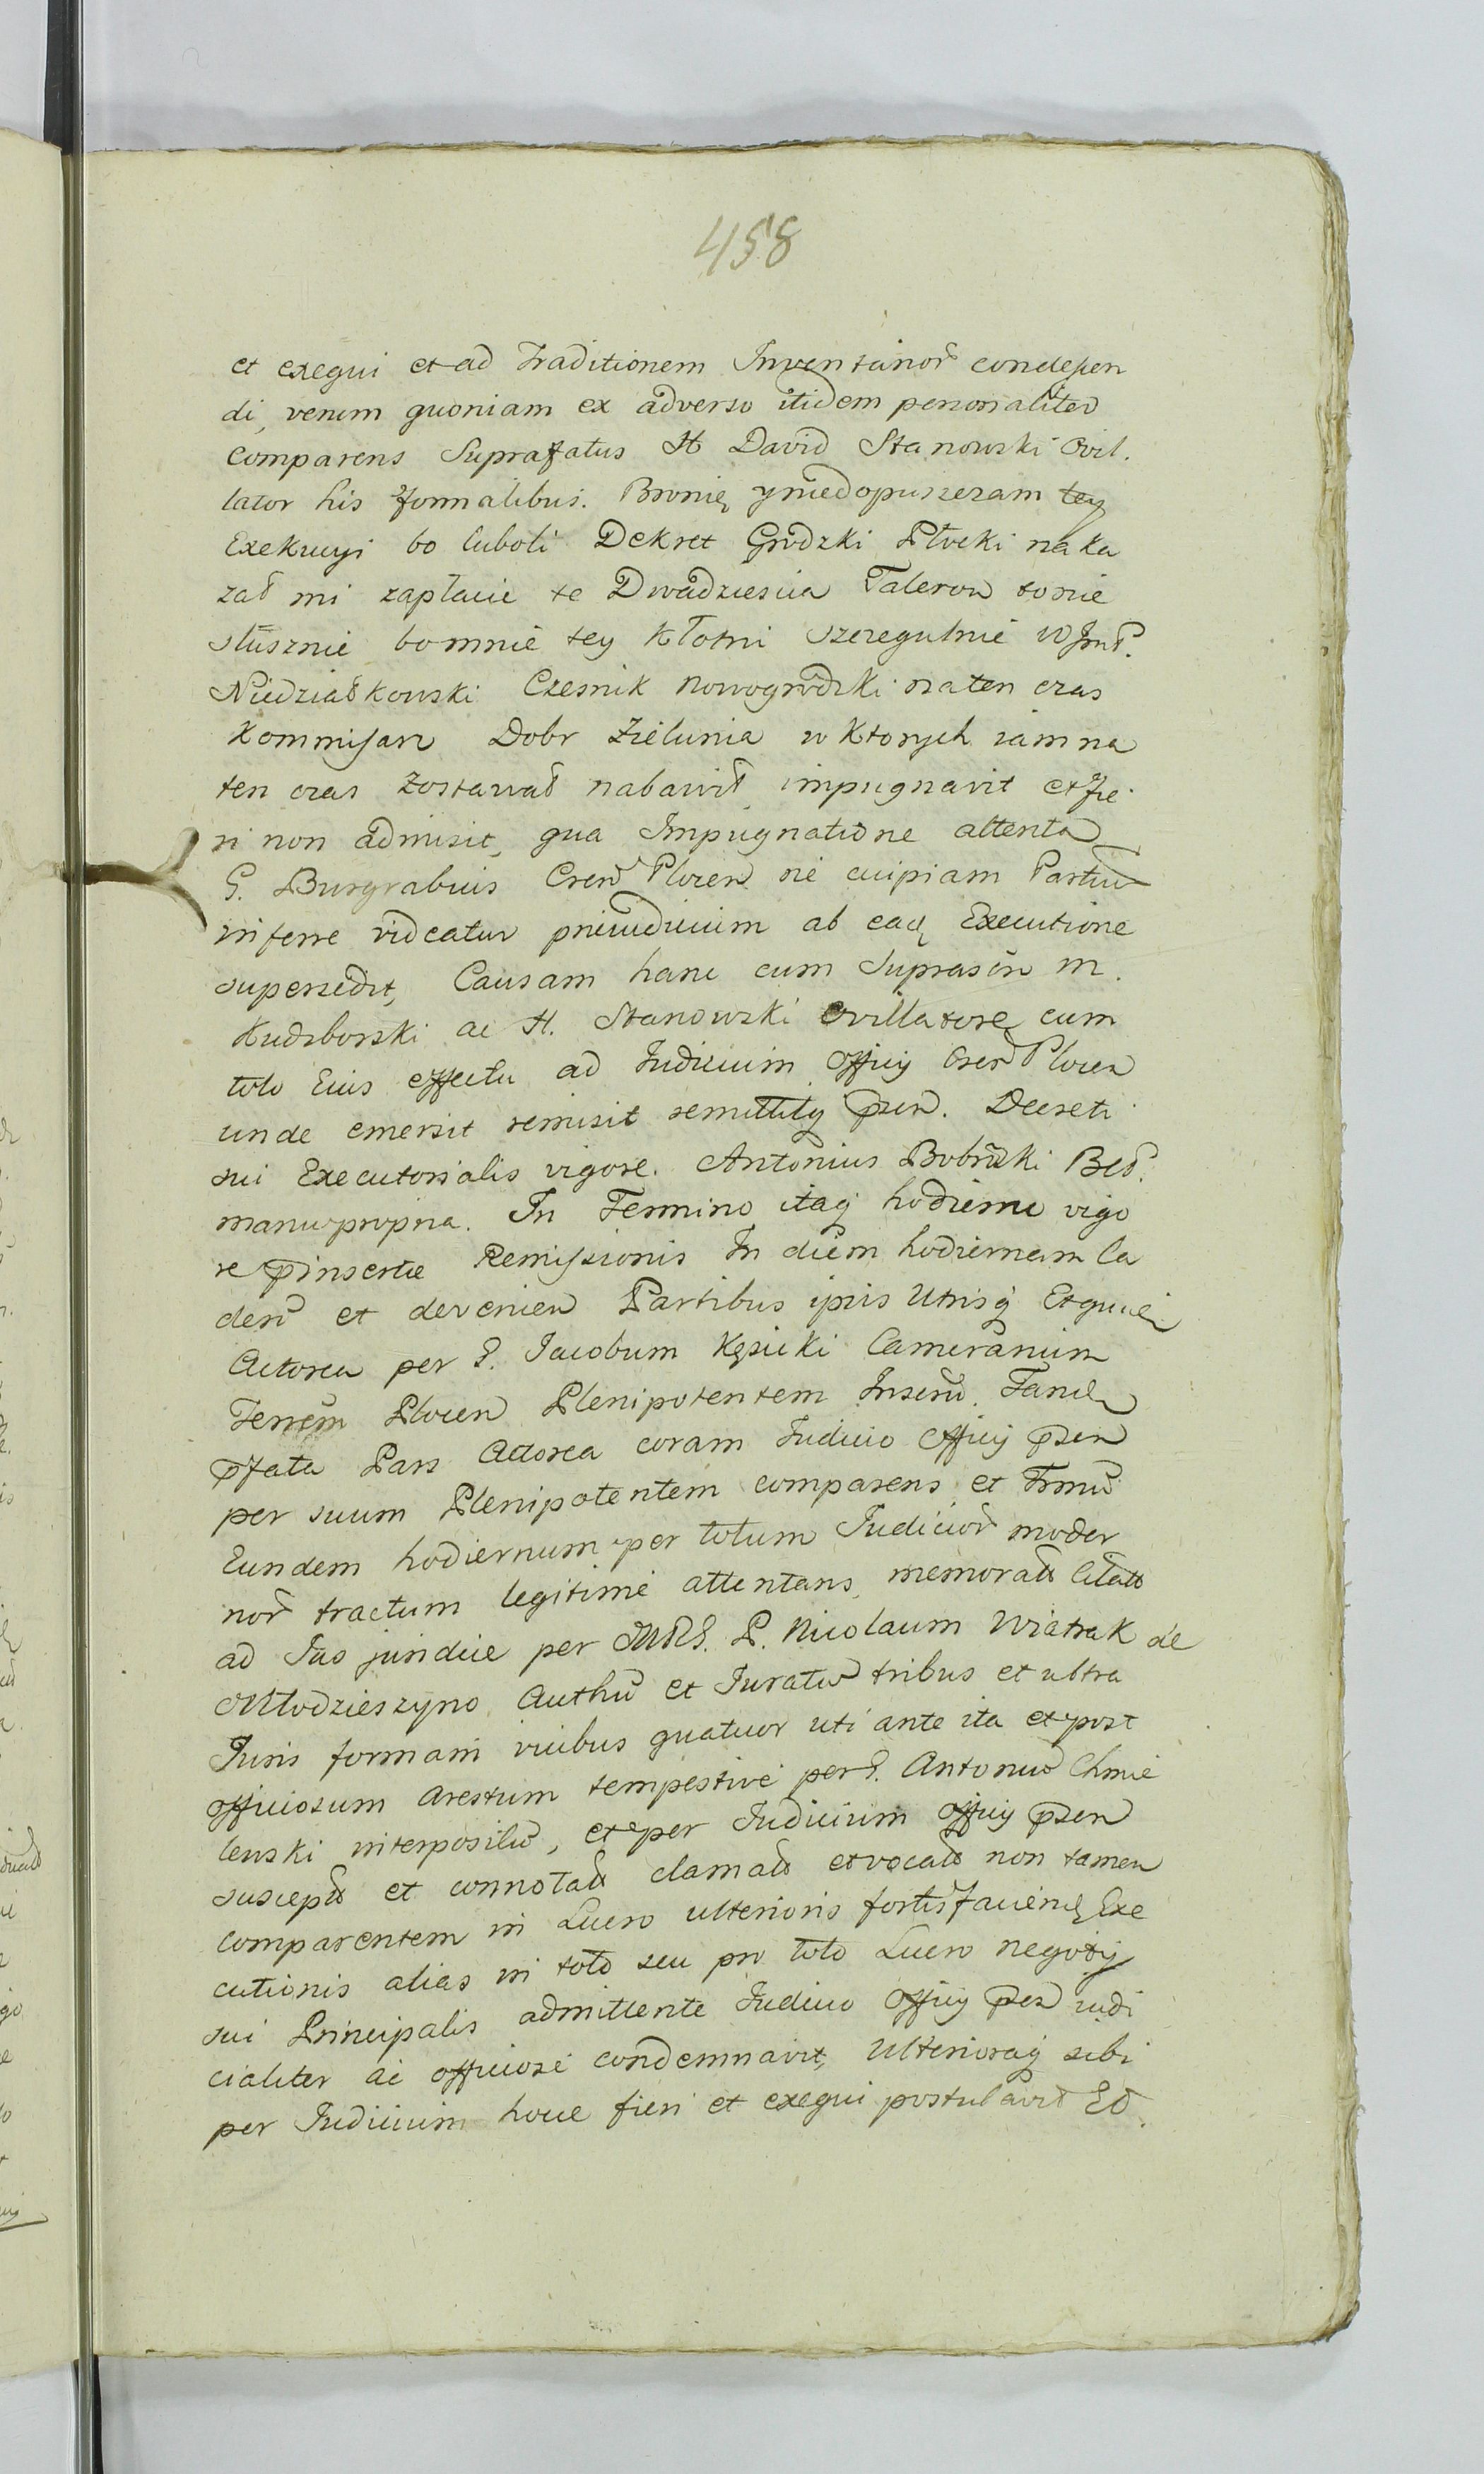 458
et exequi et ad Traditionem Inventarior condescen
di, verum quoniam ex adverso itidem personaliter
Comparens Suprafatus H David Stanowski Ovil.
lator his formalibus. Bronię y niedopuszczam tey
Exekucyi bo luboli Dekret Grodzki Płocki naka
zał mi zapłacic te Dwadziescia Talerow to nie
słusznie bo mnie tey Kłotni szczegulnie WJmć
Niedziałkowski Czesnik Nowogrodzki na ten czas
Kommissarz Dobr Zielunia w Ktorych iam na
ten czas Zostawał nabawił impugnavit et fie
ri non admisit, qua Impugnatione attenta
G. Burgrabius Cren Plocen ne cuipiam Partiu
inferre videatur preiudicium ab eadq Executione
supersedit, Causam hanc cum Suprascrip M.
Kudzborski ac H. Stanowski Ovillatore cum
toto Eius effectu ad Judicium Officij Cren Plocen
unde emersit remisit remittitq pren. Decreti
sui Executorialis vigore. Antonius Bobrzki
manu propria. In Termino itaq hodierno vigo
re pinserte Remissionis In diem hodiernam Ca
den et devenien Partibus ipsis Utrisq
Actorea per G. Jacobum Kęsicki Camerarium
Terrem Plocen Plenipotentem
pfata Pars Actorea coram Judicio Officij psen
per suum Plenipotentem comparens et Trmu
Eundem hodiernum per totum Judicior moder
nor tractum legitime attentans memorat Citat
ad Jus juridice per P. Nicolaum Wiatrak de
Młodzieszyno Authu et Juratu tribus et ultra
Juris formam vicibus quatuor uti ante ita et post
officiosum Arestum tempestive per G. Antoniu Chmie
lenski interpositu, et per Judicium Officij psen
suscept et connotat clamat et vocat non tamen
comparentem in Lucro ulterioris fortis faciend Exe
cutionis alias in toto seu pro toto Lucro negotij
sui Principalis admittente Judicio Officij psen iudi
cialiter ac officiose condemnavit, Ulterioraq sibi
per Judicium hocce fieri et exequi postulavit Et.